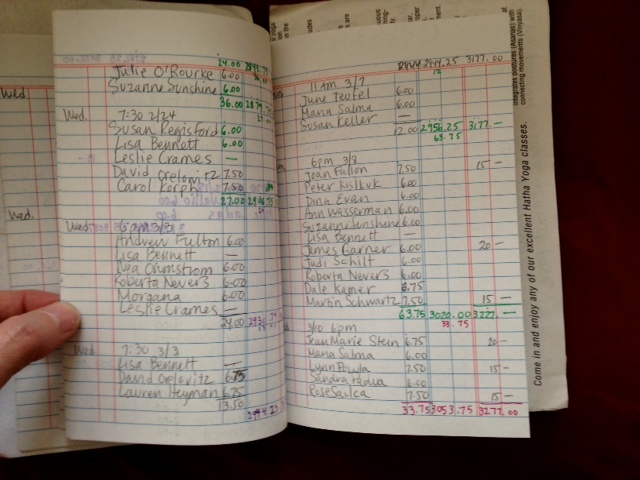 Wed
Wed.
24.00
Julie O'Rourke 6.00
Suzanne Sunshine 6.00
36.00
Wed. 7:30 2/24
Susan Regisford 6.00
Lisa Bennett 6.00
Leslie Crames —
David Orelowitz 7.50
Carol Korph 7.50
27.00
Wed.
Andrew Fulton 6.00
Lisa Bennett —
Roberta Nevers 6.00
Morgana 6.00
Leslie Crames —
24.00
Wed 7:30 3/3
Lisa Bennett —
David Orelovitz 6.75
Lauren Heyman 6.75
13.50
2944.25 3177.00
11am 3/7
June Teufel 6.00
Mana Salma 6.00
Susan Keller —
12.00 2956.25 3177 —
63.75
6pm 3/8
Joan Fallon 7.50 15 —
Peter 6.00
Dina Evan 6.00
Ann Wasserman 6.00
Suzanne Sunshine 6.00
Lisa Bennett —
James Garner 6.00 20 —
Judi Schilt 6.00
Roberta Nevers 6.00
Dale Kamer 6.75
Martin Schwartz 7.50 15 —
63.75 3020.00 3227. —
33.75
3/10 6pm
Jean Marie Stein 6.75 20 —
Mana Salma 6.00
Lynn 7.50 15 —
Sandra Padua 6.00
Rose 7.50 15 —
33.75 3053.75 3277.00
integrates postures (Asanas) with
connecting movements (Vinyasa).
Come in and enjoy any of our excellent Hatha Yoga classes.